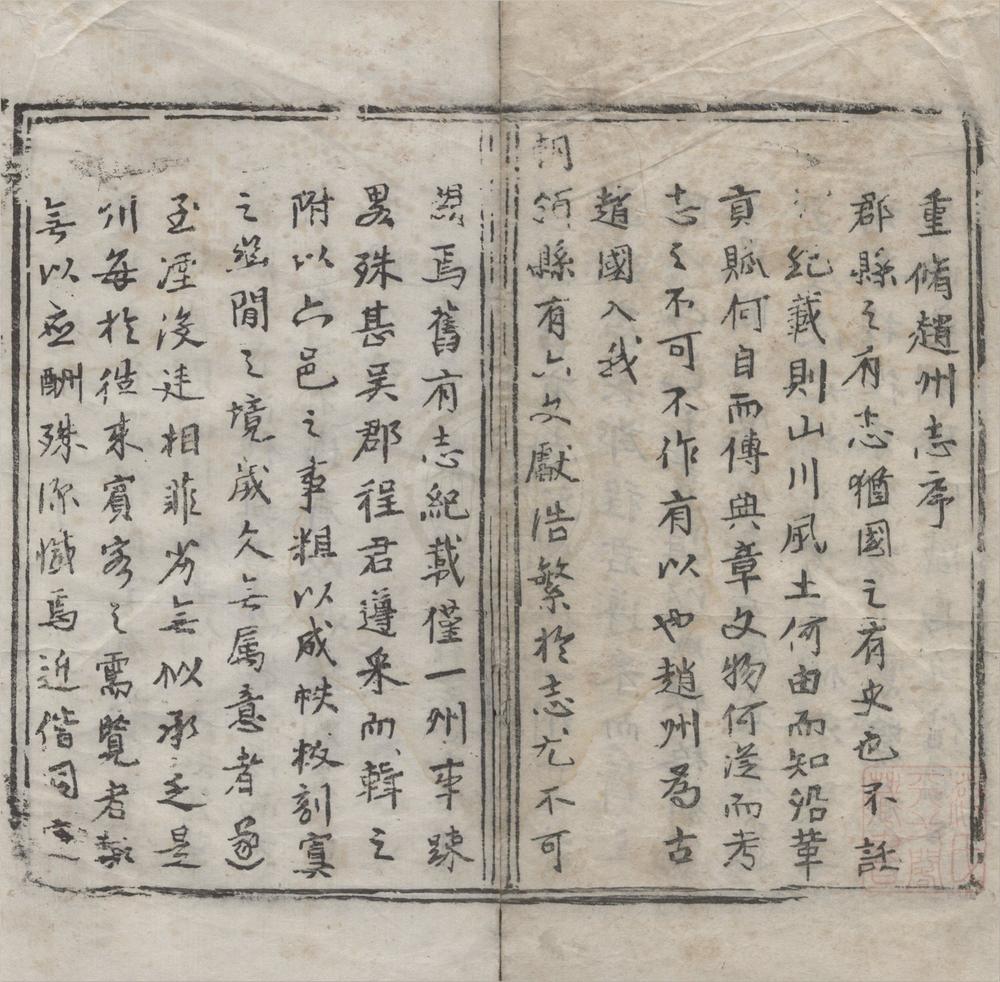 重脩趙州志序
郡縣之有志猶國之有史也不誌
紀載則山川風土何由而知沿革
貢賦何自而傳典章文物何從而考
志之不可不作有以也趙州為古
趙國入我
朝領縣有六文獻浩繁於志尤不可
焉舊有志紀載僅一州事疎
畧殊甚吳郡程君遵采而輯之
附以六邑之事粗以成帙板刻寘
之幽閒之境歲久無属意者遂
至湮没廷相菲劣無似承乏是
州每於徃來賓客之需覽者輒
無以應酬殊深慨焉近偕同